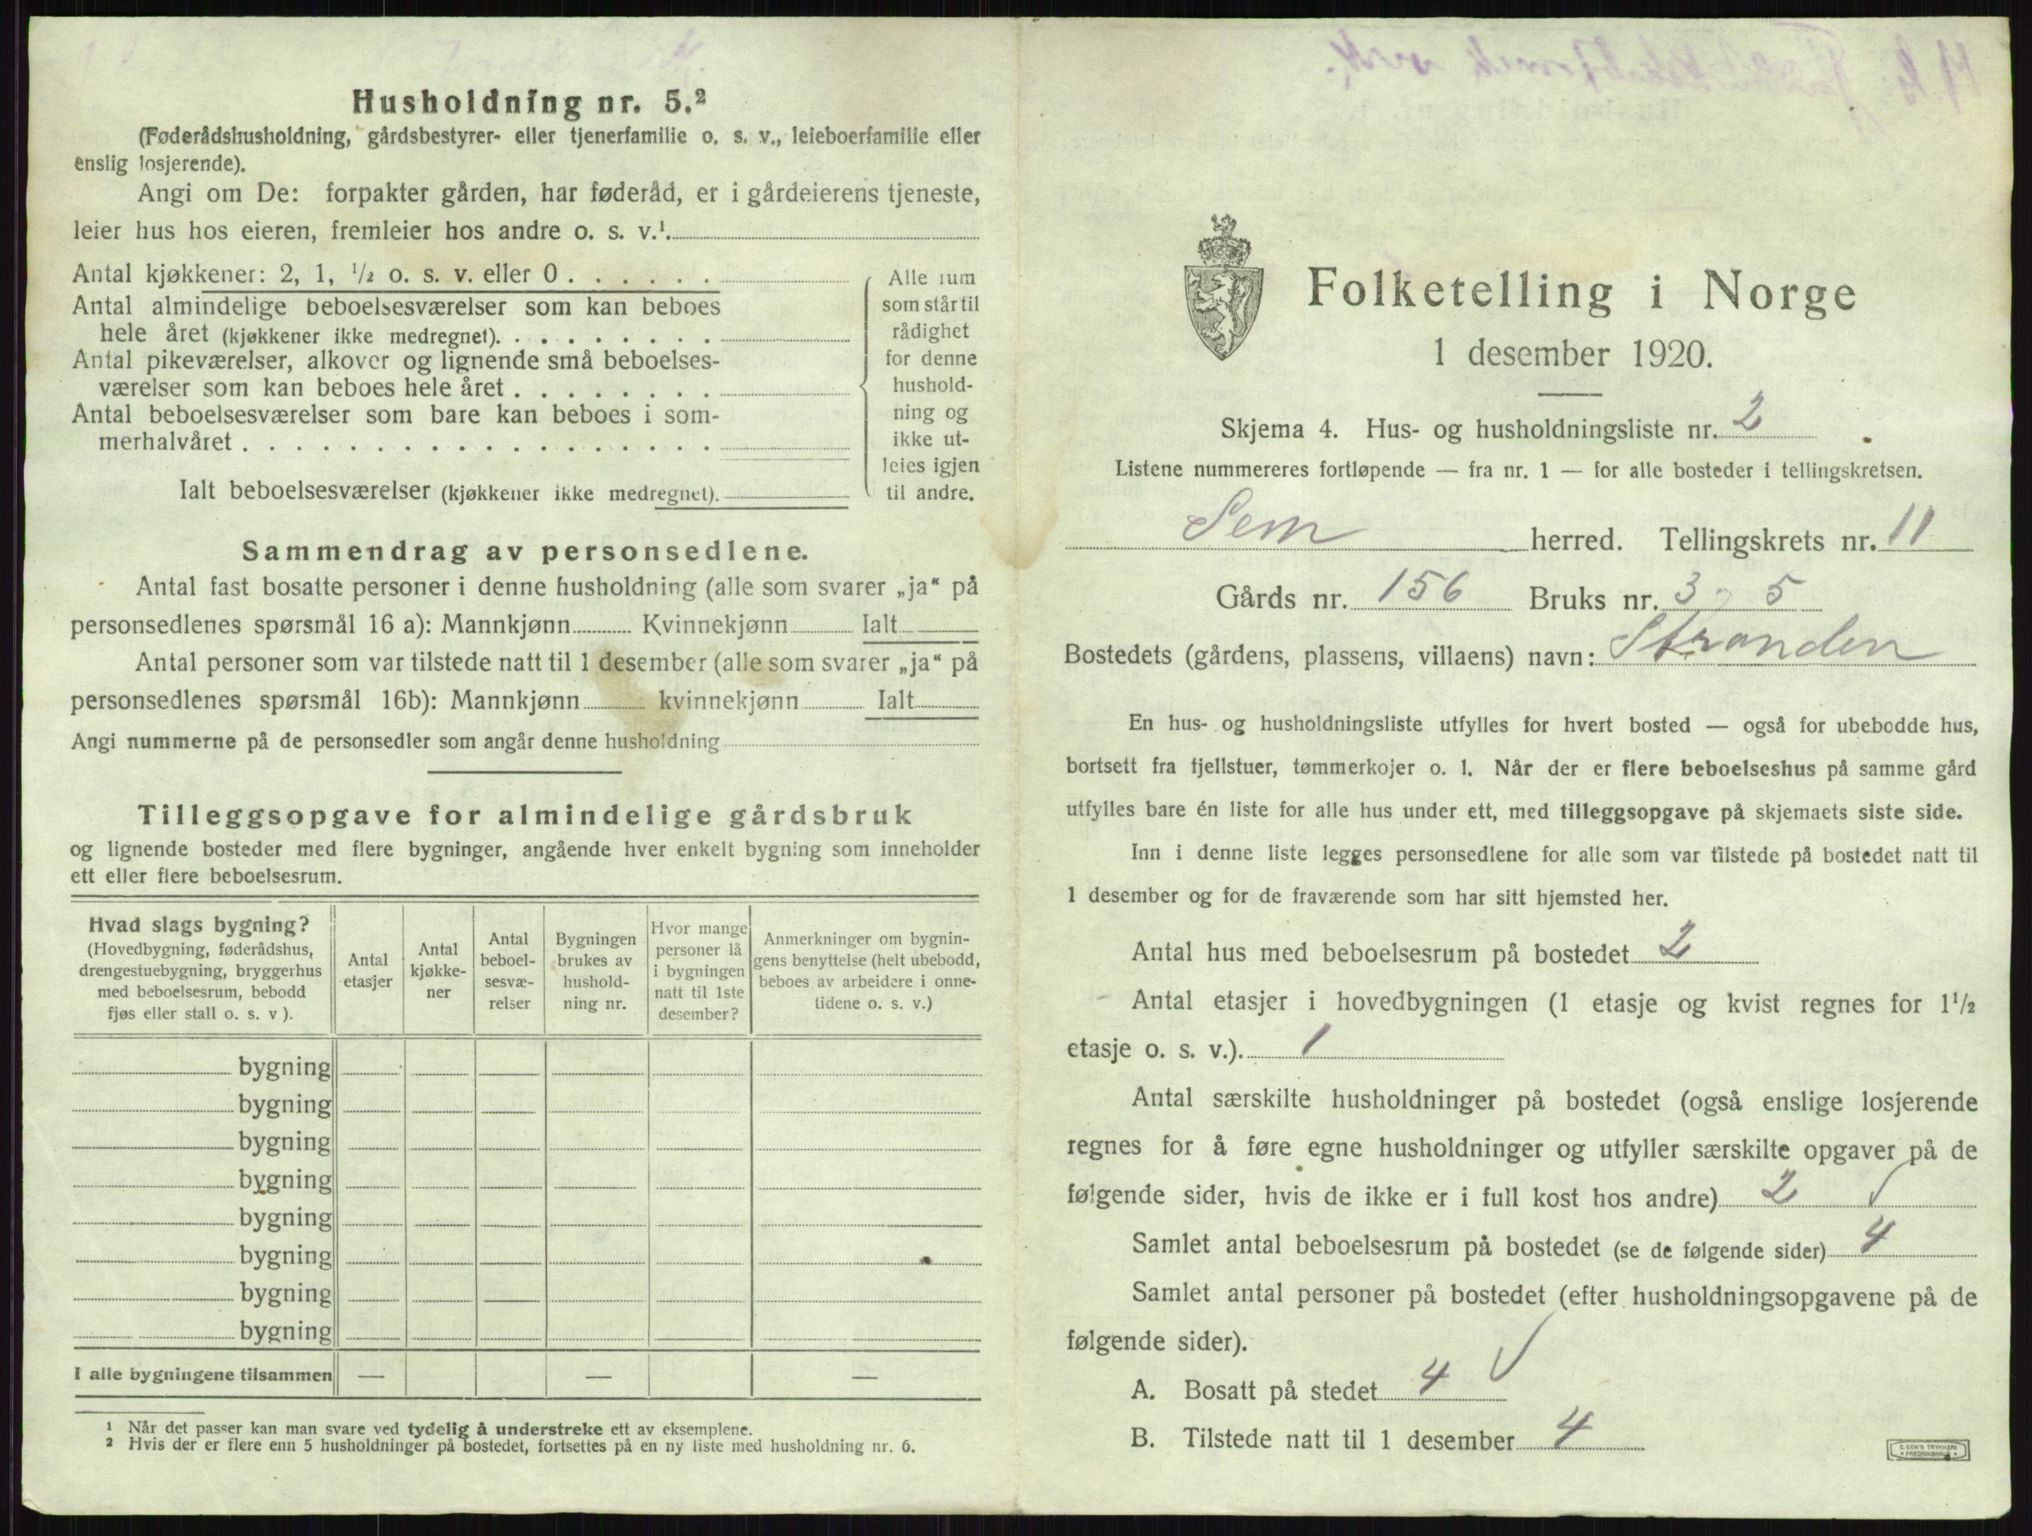 Husholdning nr. 5.²
(Føderådshusholdning, gårdsbestyrer- eller tjenerfamilie o. s. v., leieboerfamilie eller
enslig losjerende).
Angi om De: forpakter gården, har føderåd, er i gårdeierens tjeneste,
leier hus hos eieren, fremleier hos andre o. s. v.¹.
Antal kjøkkener: 2, 1, ¹/₂ o. s. v. eller 0
Antal almindelige beboelsesværelser som kan beboes
hele året (kjøkkener ikke medregnet).
Antal pikeværelser, alkover og lignende små beboelses-
værelser som kan beboes hele året
Antal beboelsesværelser som bare kan beboes i som-
merhalvåret
Ialt beboelsesværelser (kjøkkener ikke medregnet).
Alle rum
som står til
rådighet
for denne
hushold-
ning og
ikke ut-
leies igjen
til andre.
Sammendrag av personsedlene.
Antal fast bosatte personer i denne husholdning (alle som svarer „ja“ på
personsedlenes spørsmål 16 a): Mannkjønn Kvinnekjønn Ialt
Antal personer som var tilstede natt til 1 desember (alle som svarer „ja“ på
personsedlenes spørsmål 16b): Mannkjønn kvinnekjønn Ialt
Angi nummerne på de personsedler som angår denne husholdning
Tilleggsopgave for almindelige gårdsbruk
og lignende bosteder med flere bygninger, angående hver enkelt bygning som inneholder
ett eller flere beboelsesrum.
Hvad slags bygning?
(Hovedbygning, føderådshus,
drengestuebygning, bryggerhus
med beboelsesrum, bebodd
fjøs eller stall o. s. v ).
Antal
etasjer
Antal
kjøkke-
ner
Antal
beboel-
sesvæ-
relser
Bygningen
brukes av
hushold-
ning nr.
Hvor mange
personer lå
i bygningen
natt til 1ste
desember?
Anmerkninger om bygnin-
gens benyttelse (helt ubebodd,
beboes av arbeidere i onne-
tidene o. s. v.)
bygning
bygning
bygning
bygning
bygning
bygning
bygning
bygning
I alle bygningene tilsammen — — —
¹ Når det passer kan man svare ved tydelig å understreke ett av eksemplene.
² Hvis der er flere enn 5 husholdninger på bostedet, fortsettes på en ny liste med husholdning nr. 6.
Folketelling i Norge
1 desember 1920.
Skjema 4. Hus- og husholdningsliste nr. 2
Listene nummereres fortløpende — fra nr. 1 — for alle bosteder i tellingskretsen.
Sem herred. Tellingskrets nr. 11
Gårds nr. 156 Bruks nr. 3 5
Bostedets (gårdens, plassens, villaens) navn: Stranden
En hus- og husholdningsliste utfylles for hvert bosted — også for ubebodde hus,
bortsett fra fjellstuer, tømmerkojer o. l. Når der er flere beboelseshus på samme gård
utfylles bare én liste for alle hus under ett, med tilleggsopgave på skjemaets siste side.
Inn i denne liste legges personsedlene for alle som var tilstede på bostedet natt til
1 desember og for de fraværende som har sitt hjemsted her.
Antal hus med beboelsesrum på bostedet 2
Antal etasjer i hovedbygningen (1 etasje og kvist regnes for 1¹/₂
etasje o. s. v.). 1
Antal særskilte husholdninger på bostedet (også enslige losjerende
regnes for å føre egne husholdninger og utfyller særskilte opgaver på de
følgende sider, hvis de ikke er i full kost hos andre) 2
Samlet antal beboelsesrum på bostedet (se de følgende sider) 4
Samlet antal personer på bostedet (efter husholdningsopgavene på de
følgende sider).
A. Bosatt på stedet 4
B. Tilstede natt til 1 desember 4